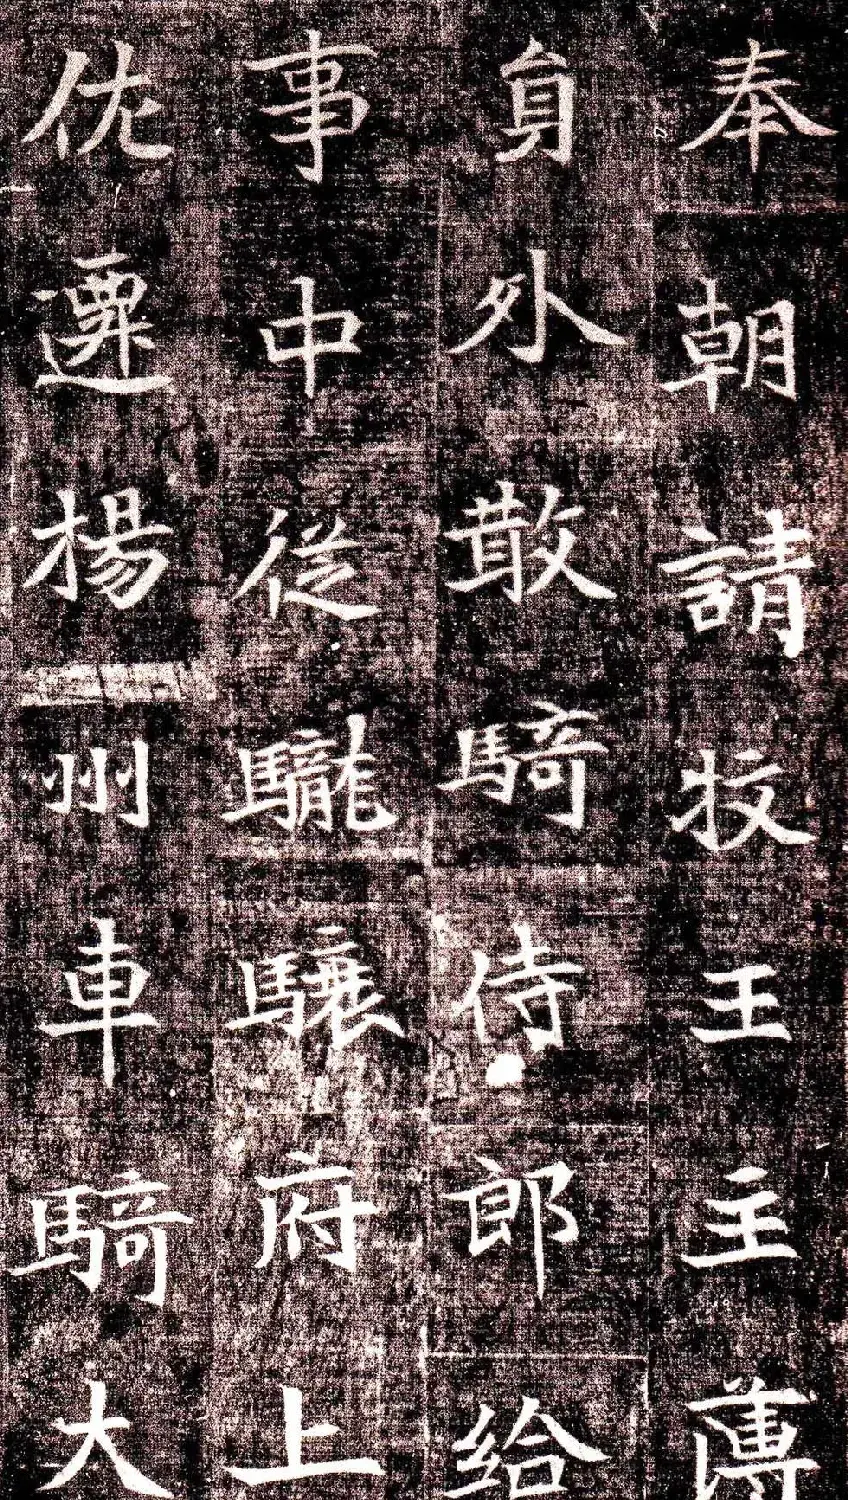 奉朝請牧王主薄
員外散騎侍郎給
事中從驣驤府上
佐遷揚州車騎大